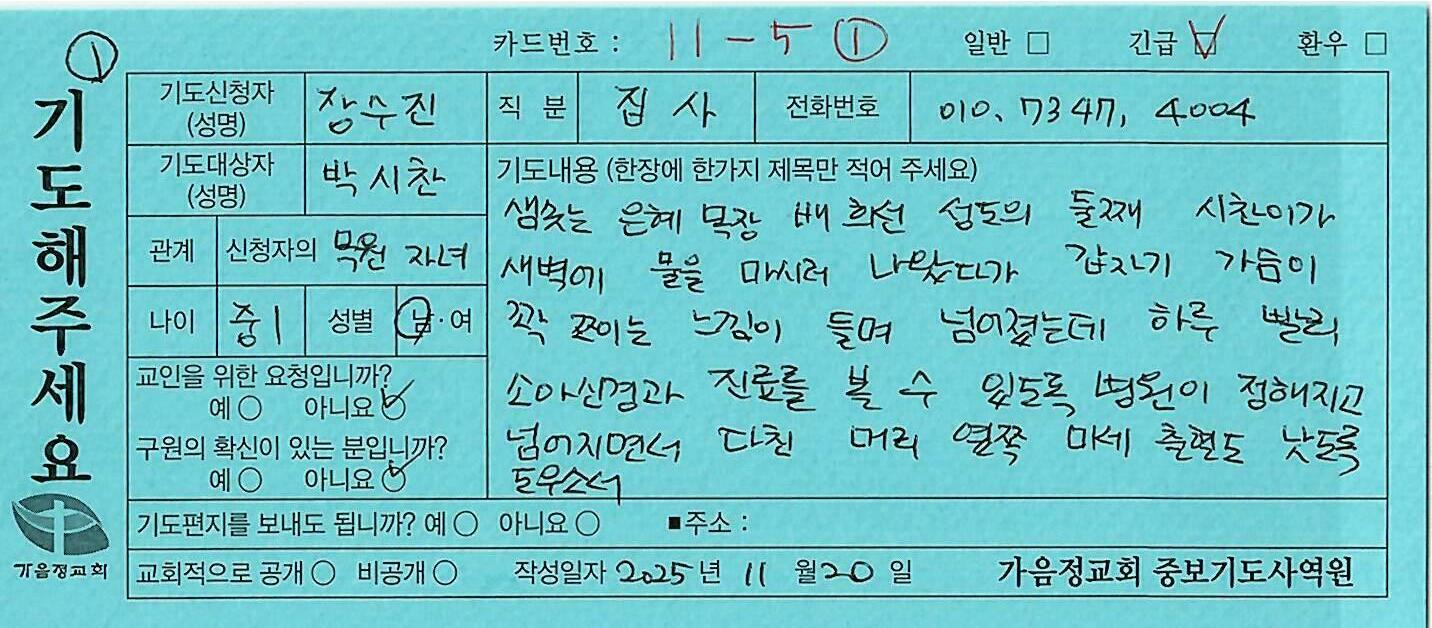 ①
카드번호 : 11-5 ① 일반 □ 긴급 ☑ 환우 □
기도해주세요
기도신청자 (성명) 장수진 직 분 집 사 전화번호 010. 7347, 4004
기도대상자 (성명) 박시찬
관계 신청자의 목원 자녀
나이 중1 성별 남·여
교인을 위한 요청입니까?
예○ 아니요○
구원의 확신이 있는 분입니까?
예○ 아니요○
기도내용 (한장에 한가지 제목만 적어 주세요)
샘솟는 은혜 목장 배희선 성도의 둘째 시찬이가
새벽에 물을 마시러 나왔다가 갑자기 가슴이
꽉 쪼이는 느낌이 들며 넘어졌는데 하루 빨리
소아신경과 진료를 볼 수 있도록 병원이 정해지고
넘어지면서 다친 머리 옆쪽 미세 출현도 낫도록
도우소서
기도편지를 보내도 됩니까? 예○ 아니요○ ■주소 :
교회적으로 공개○ 비공개○ 작성일자 2025년 11월 20일 가음정교회 중보기도사역원
가음정교회